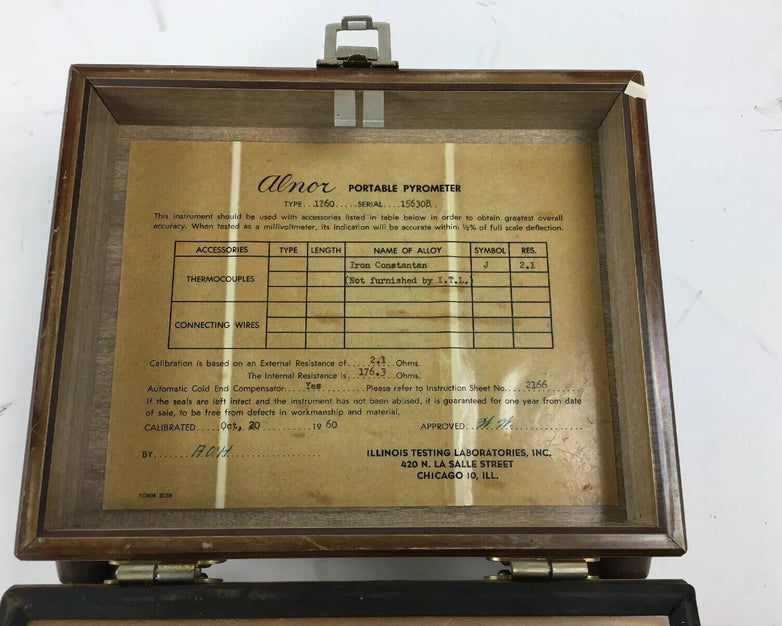 Alnor PORTABLE PYROMETER
TYPE..1760.....SERIAL....156308..
This instrument should be used with accessories listed in table below in order to obtain greatest overall
accuracy. When tested as a millivoltmeter, its indication will be accurate within ½% of full scale deflection.
ACCESSORIES TYPE LENGTH NAME OF ALLOY SYMBOL RES.
Iron Constantan J 2.1
THERMOCOUPLES (Not furnished by I.T.L.)
CONNECTING WIRES
Calibration is based on an External Resistance of.....2.1..Ohms.
The Internal Resistance is...176.3...Ohms.
Automatic Cold End Compensator:....Yes..........Please refer to Instruction Sheet No....2166......
If the seals are left intact and the instrument has not been abused, it is guaranteed for one year from date
of sale, to be free from defects in workmanship and material.
CALIBRATED.....Oct, 20............1960 APPROVED...H.H.............
BY........A.O.H......................
ILLINOIS TESTING LABORATORIES, INC.
420 N. LA SALLE STREET
CHICAGO 10, ILL.
FORM 203B